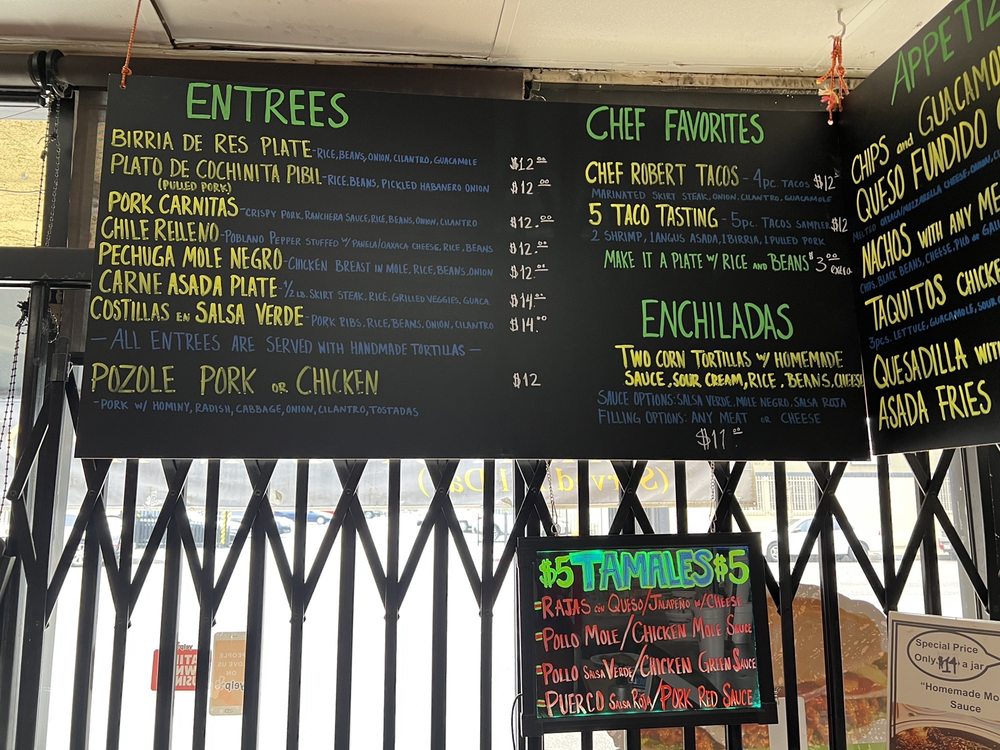 ENTREES
BIRRIA DE RES PLATE - RICE, BEANS, ONION, CILANTRO, GUACAMOLE $12.00
PLATO DE COCHINITA PIBIL - RICE, BEANS, PICKLED HABANERO ONION $12.00
(PULLED PORK)
PORK CARNITAS - CRISPY PORK, RANCHERA SAUCE, RICE, BEANS, ONION, CILANTRO $12.00
CHILE RELLENO - POBLANO PEPPER STUFFED W/ PANELA/OAXACA CHEESE, RICE, BEANS $12.00
PECHUGA MOLE NEGRO - CHICKEN BREAST IN MOLE, RICE, BEANS, ONION $12.00
CARNE ASADA PLATE - 1/2 LB. SKIRT STEAK, RICE, GRILLED VEGGIES, GUACA $14.00
COSTILLAS EN SALSA VERDE - PORK RIBS, RICE, BEANS, ONION, CILANTRO $14.00
- ALL ENTREES ARE SERVED WITH HANDMADE TORTILLAS -
POZOLE PORK OR CHICKEN $12
- PORK W/ HOMINY, RADISH, CABBAGE, ONION, CILANTRO, TOSTADAS
CHEF FAVORITES
CHEF ROBERT TACOS - 4pc. TACOS $12
MARINATED SKIRT STEAK, ONION, CILANTRO, GUACAMOLE
5 TACO TASTING - 5pc. TACOS SAMPLER $12
2 SHRIMP, 1 ANGUS ASADA, 1 BIRRIA, 1 PULLED PORK
MAKE IT A PLATE W/ RICE AND BEANS $3.00 EXTRA
ENCHILADAS
TWO CORN TORTILLAS W/ HOMEMADE
SAUCE, SOUR CREAM, RICE, BEANS, CHEESE
SAUCE OPTIONS: SALSA VERDE, MOLE NEGRO, SALSA ROJA
FILLING OPTIONS: ANY MEAT OR CHEESE
$11.00
APPETIZ
CHIPS and GUACAMOL
QUESO FUNDIDO
MELTED OAXACA/MOZZARELLA CHEESE, ONION,
NACHOS WITH ANY ME
CHIPS, BLACK BEANS, CHEESE, PICO de GAL
TAQUITOS CHICKE
3pcs. LETTUCE, GUACAMOLE, SOUR
QUESADILLA WITH
ASADA FRIES
(Served All Day)
$5 TAMALES $5
- RAJAS CON QUESO/JALAPEÑO W/ CHEESE
- POLLO MOLE/CHICKEN MOLE SAUCE
- POLLO SALSA VERDE/CHICKEN GREEN SAUCE
- PUERCO SALSA ROJA/PORK RED SAUCE
PEOPLE
LOVE US
ON
yelp
Special Price
Only $14 a jar
"Homemade Mo
Sauce